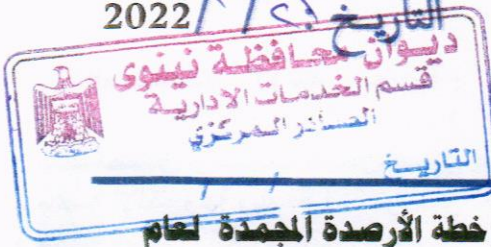 التاريخ / / 2022
ديوان محافظة نينوى
قسم الخدمات الادارية
الصادر المركزي
التاريخ / /
خطة الأرصدة المجمدة لعام